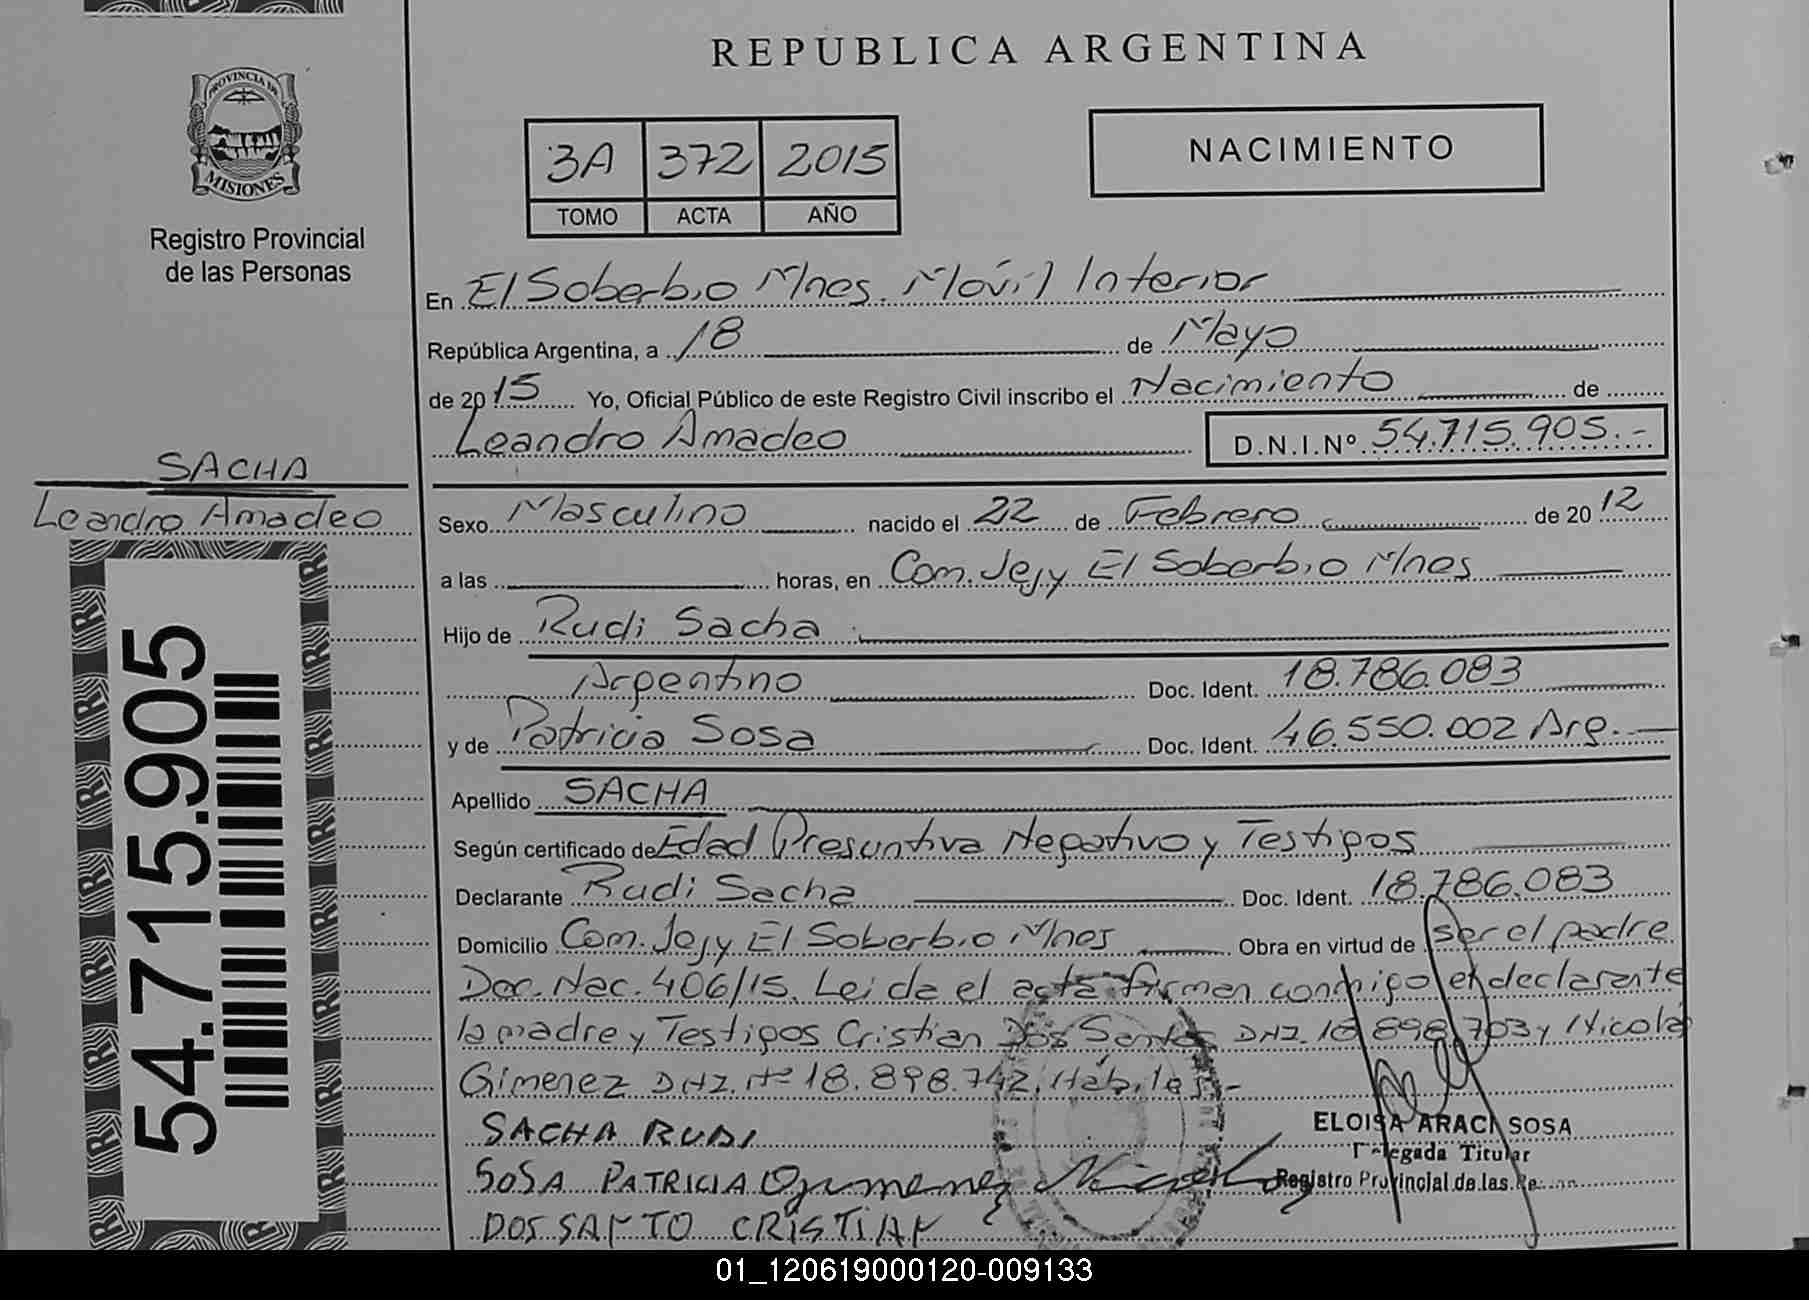 REPUBLICA ARGENTINA
PROVINCIA DE MISIONES
Registro Provincial
de las Personas
3A 372 2015
TOMO ACTA AÑO
NACIMIENTO
En El Soberbio Mnes. Móvil Interior
República Argentina, a 18 de Mayo
de 2015 Yo, Oficial Público de este Registro Civil inscribo el Nacimiento de
Leandro Amadeo D.N.I.Nº 54.715.905.-
SACHA
Leandro Amadeo
Sexo Masculino nacido el 22 de Febrero de 2012
a las horas, en Com. Jejy El Soberbio Mnes
Hijo de Rudi Sacha
Argentino Doc. Ident. 18.786.083
y de Patricia Sosa Doc. Ident. 46.550.002 Arg.-
Apellido SACHA
Según certificado de Edad Presuntiva Negativo y Testigos
Declarante Rudi Sacha Doc. Ident. 18.786.083
Domicilio Com. Jejy El Soberbio Mnes Obra en virtud de ser el padre
Doc. Nac. 406/15. Leida el acta firman conmigo el declarante
la madre y Testigos Cristian Dos Santos DNI. 18.898.703 y Nicolás
Gimenez DNI. Nº 18.898.742. Hábiles.-
SACHA RUDI
SOSA PATRICIA Gimenez Nicolas
DOS SANTO CRISTIAN
ELOISA ARACI SOSA
Delegada Titular
Registro Provincial de las Pe
54.715.905
01_120619000120-009133